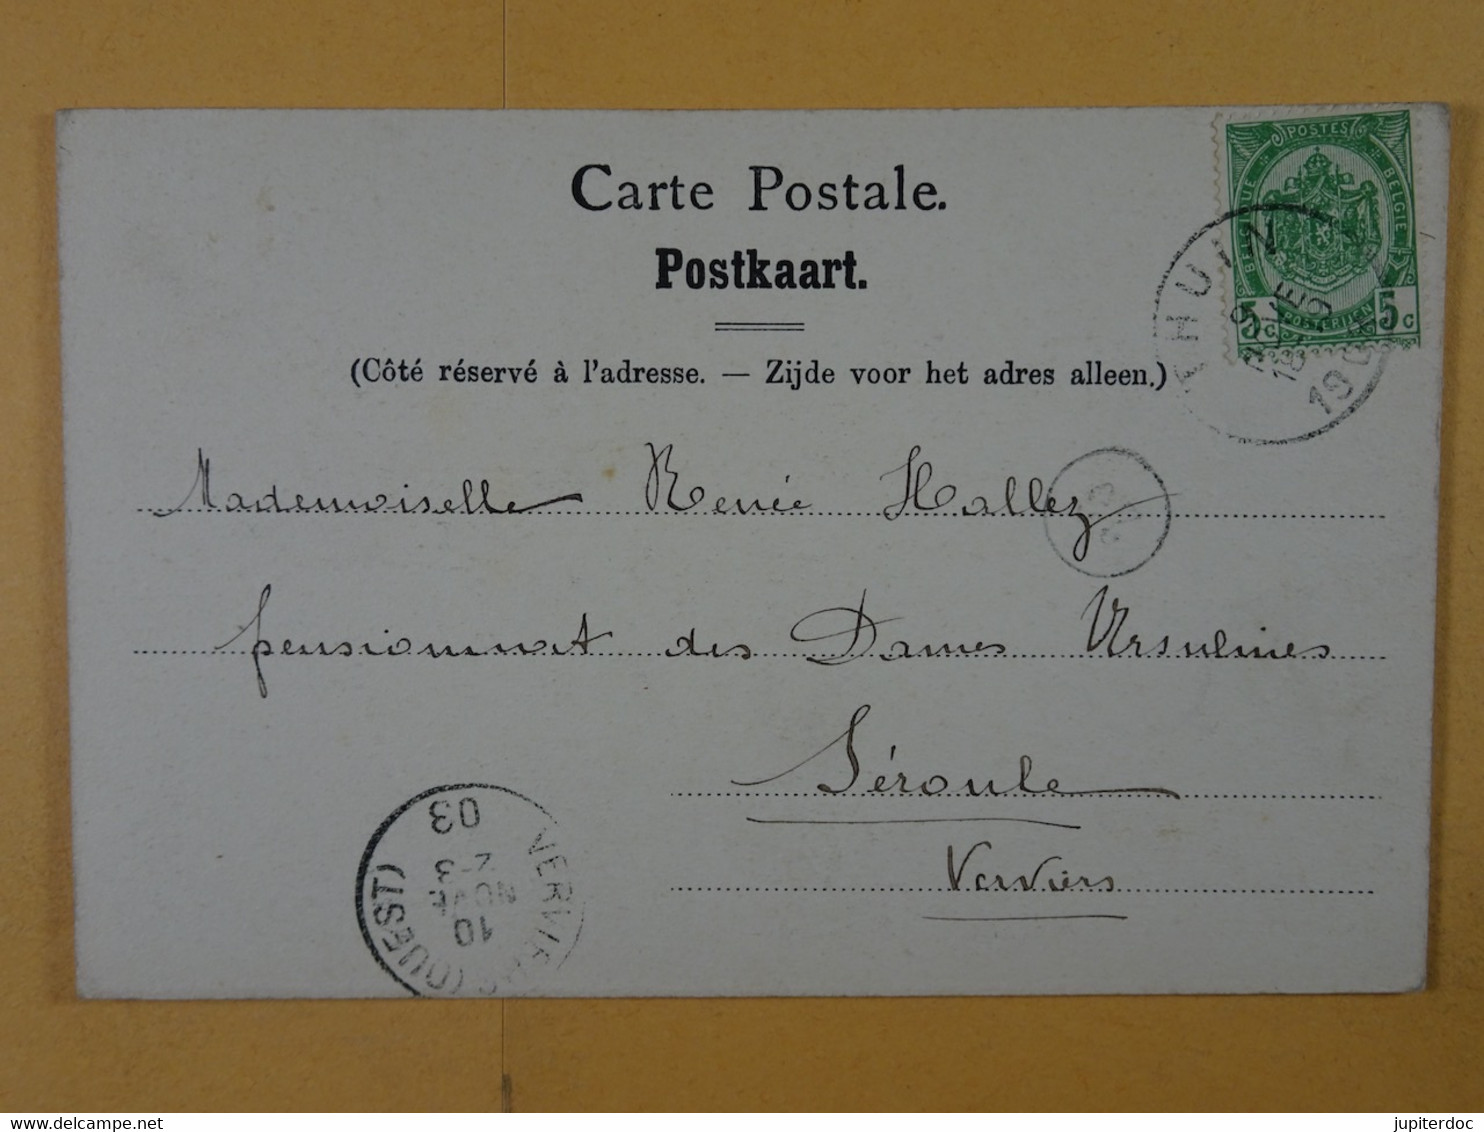 Carte Postale.
Postkaart.
(Côté réservé à l'adresse. — Zijde voor het adres alleen.)
POSTES
BELGIQUE
BELGIE
5c POSTERIJEN 5c
THUIN
9
19
Mademoiselle Renée Hallez
pensionnat des Dames Ursulines
Séroule
Verviers
VERVIERS (OUEST)
10
NOVE
2-3
03
delcampe.net
jupiterdoc